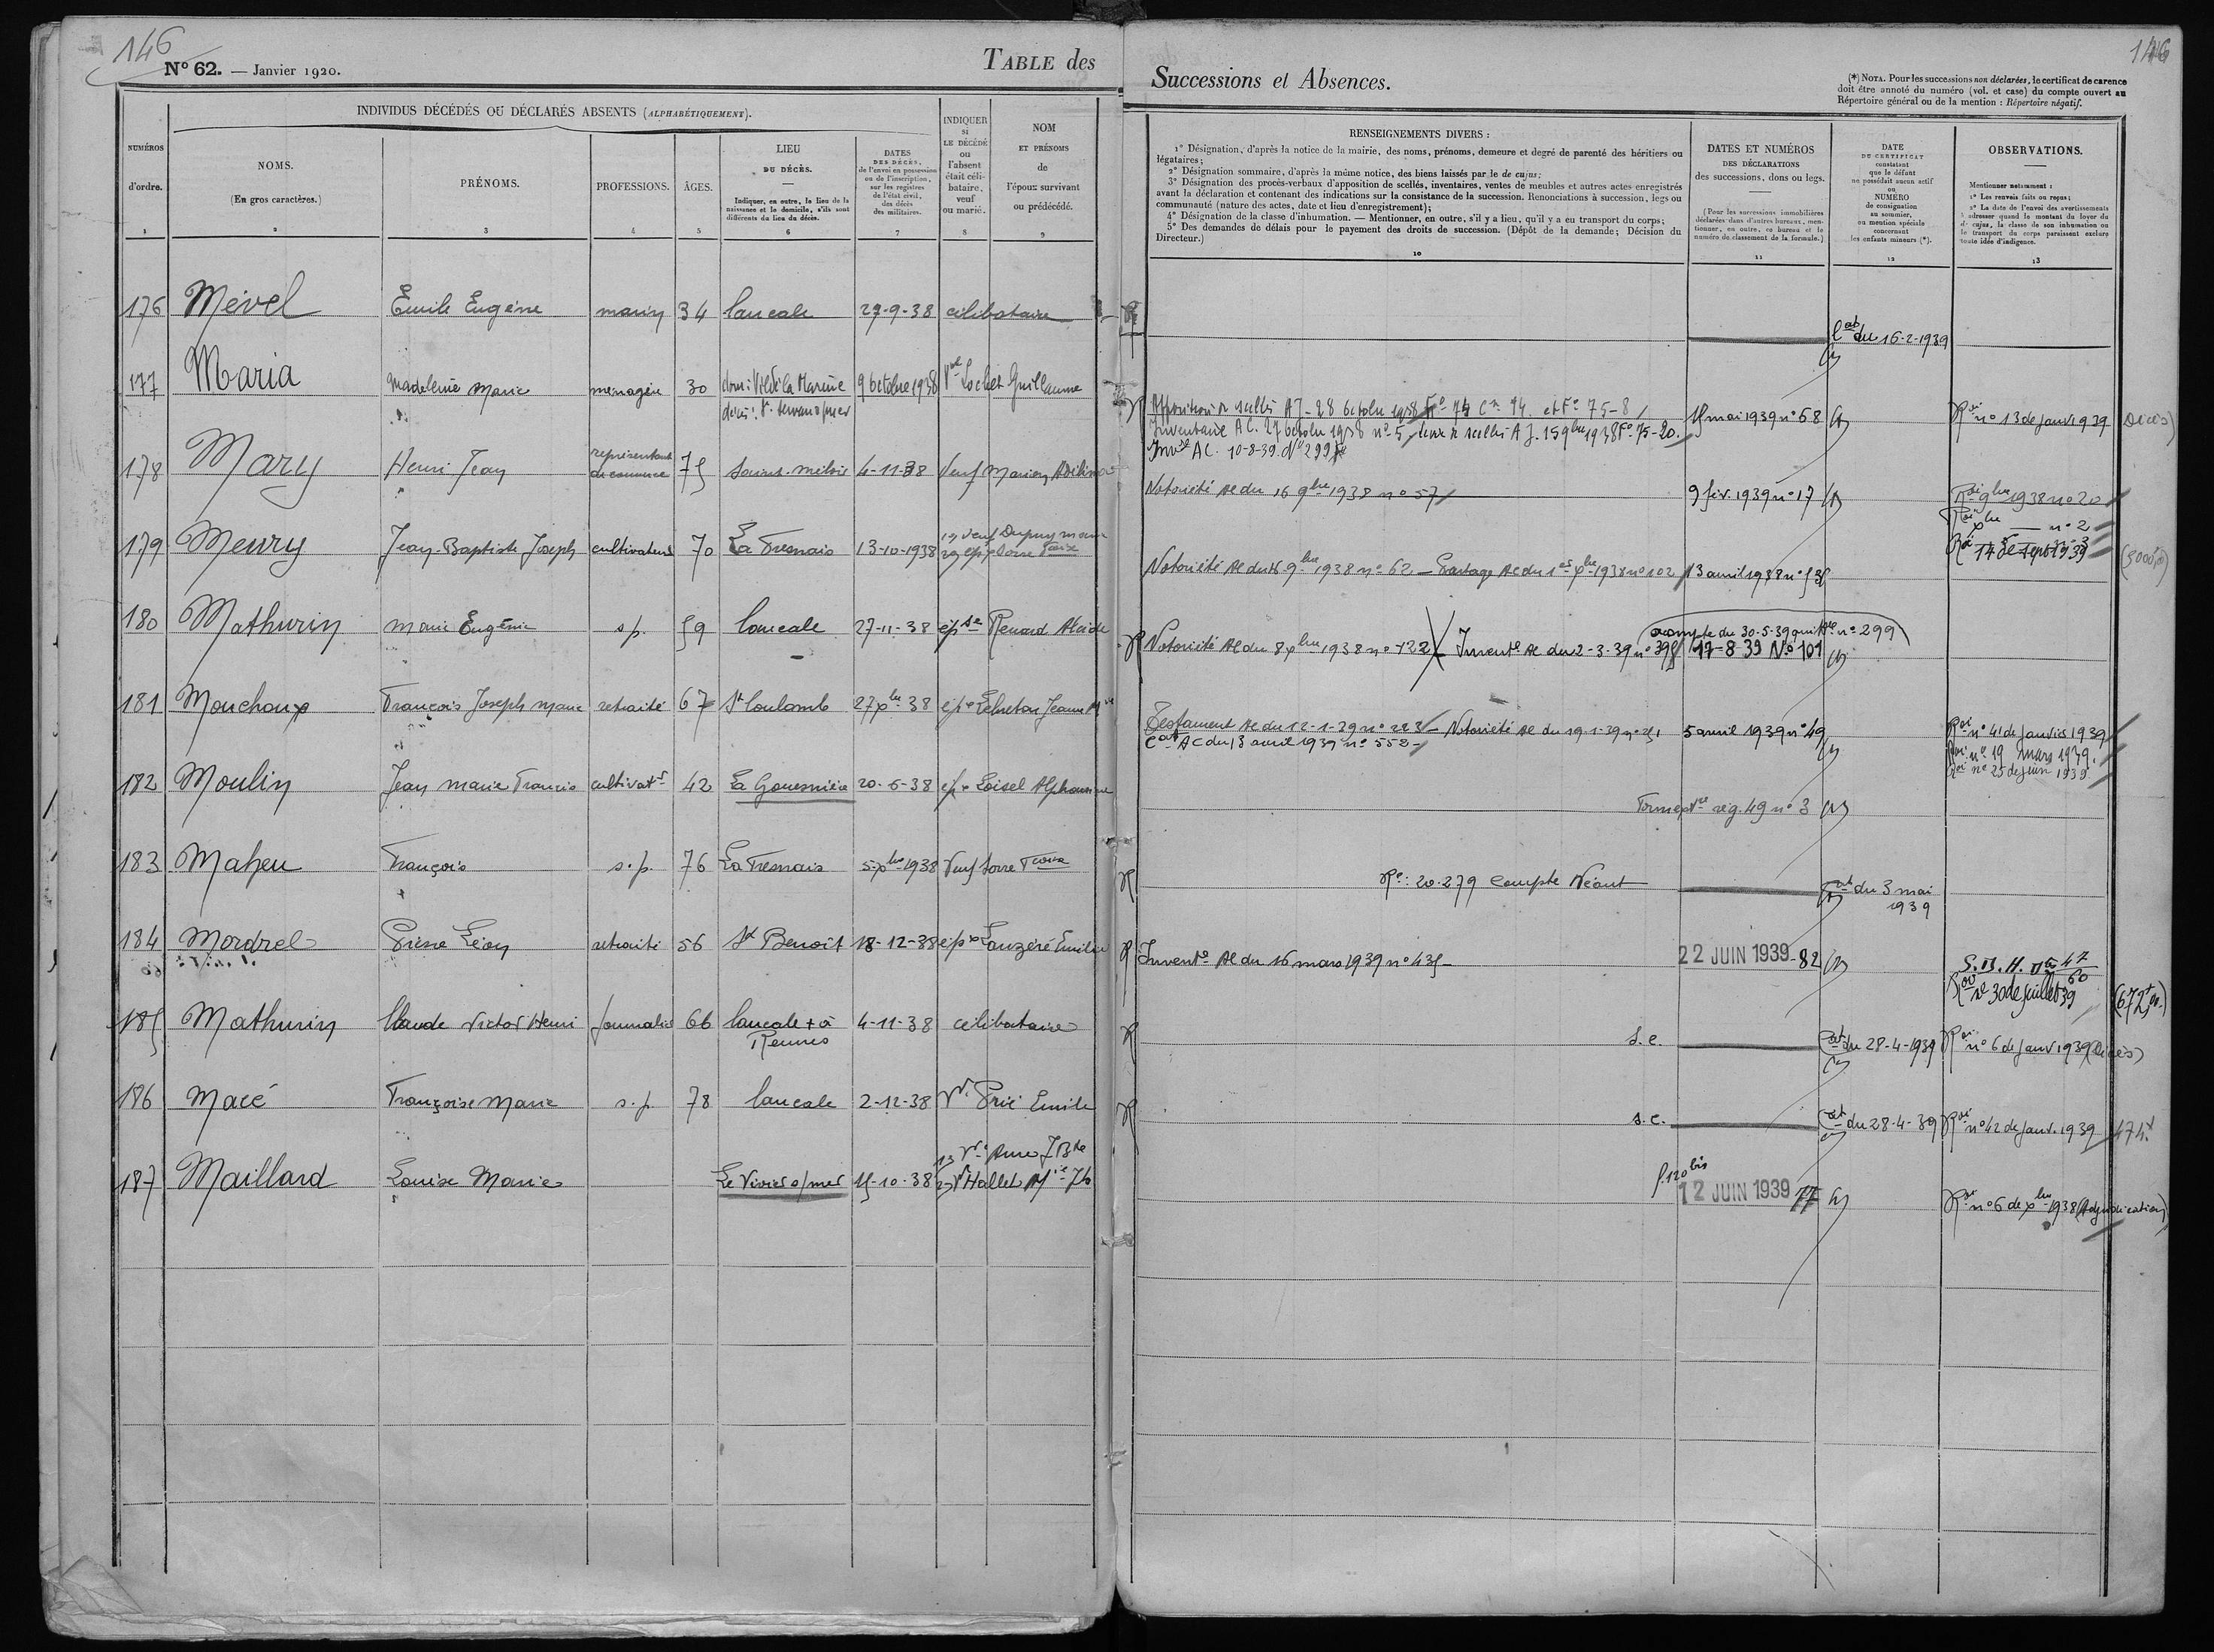 146
N° 62. — Janvier 1920.
TABLE des
INDIVIDUS DÉCÉDÉS OU DÉCLARÉS ABSENTS (ALPHABÉTIQUEMENT).
NUMÉROS
d'ordre.
1
NOMS.
(En gros caractères.)
2
PRÉNOMS.
3
PROFESSIONS.
4
ÂGES.
5
LIEU
DU DÉCÈS.
Indiquer, en outre, le lieu de la
naissance et le domicile, s'ils sont
différents du lieu du décès.
6
DATES
DES DÉCÈS,
de l'envoi en possession
ou de l'inscription,
sur les registres
de l'état civil,
des décès
des militaires.
7
INDIQUER
si
LE DÉCÉDÉ
ou
l'absent
était céli-
bataire,
veuf
ou marié.
8
NOM
ET PRÉNOMS
de
l'époux survivant
ou prédécédé.
9
176 Mével Emile Eugène marin 34 Cancale 29-9-38 célibataire
177 Maria Madeleine Marie ménagère 30 dom: Vildé la Marine 9 octobre 1938 Vve Lochet Guillaume
décès: St Servan s/mer
178 Mary Henri Jean représentant de commerce 75 Saint-Méloir 4-11-38 Veuf Marion
179 Meury Jean-Baptiste Joseph cultivateur 70 La Fresnais 13-10-1938 1) veuf Dupuy Marie
180 Mathurin Marie Eugénie s.p. 59 Cancale 27-11-38 épse Renard Alcide
181 Mouchoux François Joseph Marie retraité 67 St Coulomb 27 xbre 38 épx Lebreton Jeanne Mie
182 Moulin Jean Marie Francis cultivatr 42 La Gouesnière 20-6-38 épx Loisel Alphonsine
183 Maheu François s.p. 76 La Fresnais 5 xbre 1938 Veuf Sorre
184 Mordrel Pierre Léon retraité 56 St Benoît 18-12-38 épx Lauzéré Emilie
185 Mathurin Claude Victor Henri Journalier 66 Cancale + à Rennes 4-11-38 célibataire
186 Macé Françoise Marie s.p. 78 Cancale 2-12-38 Vve Prié Emile
187 Maillard Louise Marie Le Vivier s/mer 15-10-38 1) Vve Aune JBte
2) Vve Hallet
146
Successions et Absences.
(*) NOTA. Pour les successions non déclarées, le certificat de carence
doit être annoté du numéro (vol. et case) du compte ouvert au
Répertoire général ou de la mention : Répertoire négatif.
RENSEIGNEMENTS DIVERS :
1° Désignation, d'après la notice de la mairie, des noms, prénoms, demeure et degré de parenté des héritiers ou
légataires;
2° Désignation sommaire, d'après la même notice, des biens laissés par le de cujus;
3° Désignation des procès-verbaux d'apposition de scellés, inventaires, ventes de meubles et autres actes enregistrés
avant la déclaration et contenant des indications sur la consistance de la succession. Renonciations à succession, legs ou
communauté (nature des actes, date et lieu d'enregistrement);
4° Désignation de la classe d'inhumation. — Mentionner, en outre, s'il y a lieu, qu'il y a eu transport du corps;
5° Des demandes de délais pour le payement des droits de succession. (Dépôt de la demande; Décision du
Directeur.)
10
DATES ET NUMÉROS
DES DÉCLARATIONS
des successions, dons ou legs.
(Pour les successions immobilières
déclarées dans d'autres bureaux, men-
tionner, en outre, ce bureau et le
numéro de classement de la formule.)
11
DATE
DU CERTIFICAT
constatant
que le défunt
ne possédait aucun actif
ou
NUMÉRO
de consignation
au sommier,
ou mention spéciale
concernant
les enfants mineurs (*).
12
OBSERVATIONS.
Mentionner notamment :
1° Les renvois faits ou reçus;
2° La date de l'envoi des avertissements
à adresser quand le montant du loyer du
de cujus, la classe de son inhumation ou
le transport du corps paraissent exclure
toute idée d'indigence.
13
Cat du 16-2-1939
Apposition de scellés AJ - 28 octobre 1938 F° 74 Ce 94 et F° 75-8
Inventaire AC. 27 octobre 1938 n° 5, levée de scellés AJ. 15 9bre 1938 F° 75-20.
Invre AC. 10-8-39. N° 299
15 mai 1939 n° 68
Roi n° 13 de janv 1939 (Décès)
Notoriété AC du 16 9bre 1938 n° 57
9 fév. 1939 n° 17
Roi 9bre 1938 n° 20
Roi xbre — n° 2
14 de sept 1939
Notoriété AC du 9bre 1938 n° 62 — Partage AC du 1er xbre 1938 n° 102
(3000,00)
Notoriété AC du 8 xbre 1938 n° 122 — Invente AC du 2-3-39 n° 395
acompte du 30-5-39 quittce n° 299
17-8-39 N° 101
Testament AC du 12-1-39 n° 223 — Notoriété AC du 19-1-39 n° 251
Cat AC du 13 avril 1939 n° 552
5 avril 1939 n° 49
Roi n° 41 de janvier 1939
Roi n° 19 mars 1939.
Roi n° 25 de juin 1939
reg. 49 n° 3
Re: 20.279 Compte Néant
Cat du 3 mai
1939
Invente AC du 16 mars 1939 n° 435
22 JUIN 1939 - 82
Roi n° 30 de juillet 39
S.C.
Cat du 28-4-1939
Roi n° 6 de janv 1939 (Décès)
S.C.
Cat du 28-4-39
Roi n° 42 de janv. 1939
f. 120 bis
12 JUIN 1939 77
Roi n° 6 de xbre 1938 (Adjudication)